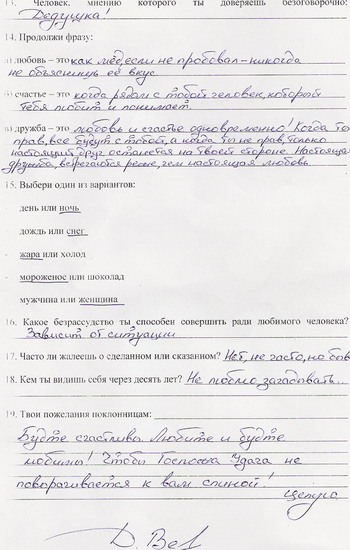 13. Человек, мнению которого ты доверяешь безоговорочно:
Дедушка!
14. Продолжи фразу:
а) любовь – это как мед, если не пробовал – никогда
не объяснишь её вкус
б) счастье – это когда рядом с тобой человек, который
тебя любит и понимает.
в) дружба – это любовь и счастье одновременно! Когда ты
прав, все будут с тобой, а когда ты не прав, только
настоящий друг останется на твоей стороне. Настоящая
дружба, встречаются реже, чем настоящая любовь.
15. Выбери один из вариантов:
день или ночь
дождь или снег
жара или холод
мороженое или шоколад
мужчина или женщина
16. Какое безрассудство ты способен совершить ради любимого человека?
Зависит от ситуации
17. Часто ли жалеешь о сделанном или сказанном? Нет, не часто, но быв
18. Кем ты видишь себя через десять лет? Не люблю загадывать...
19. Твои пожелания поклонницам:
Будте счастливы. Любите и будте
любимы! Чтобы Госпожа Удача не
поворачивается к вам спиной!
Целую